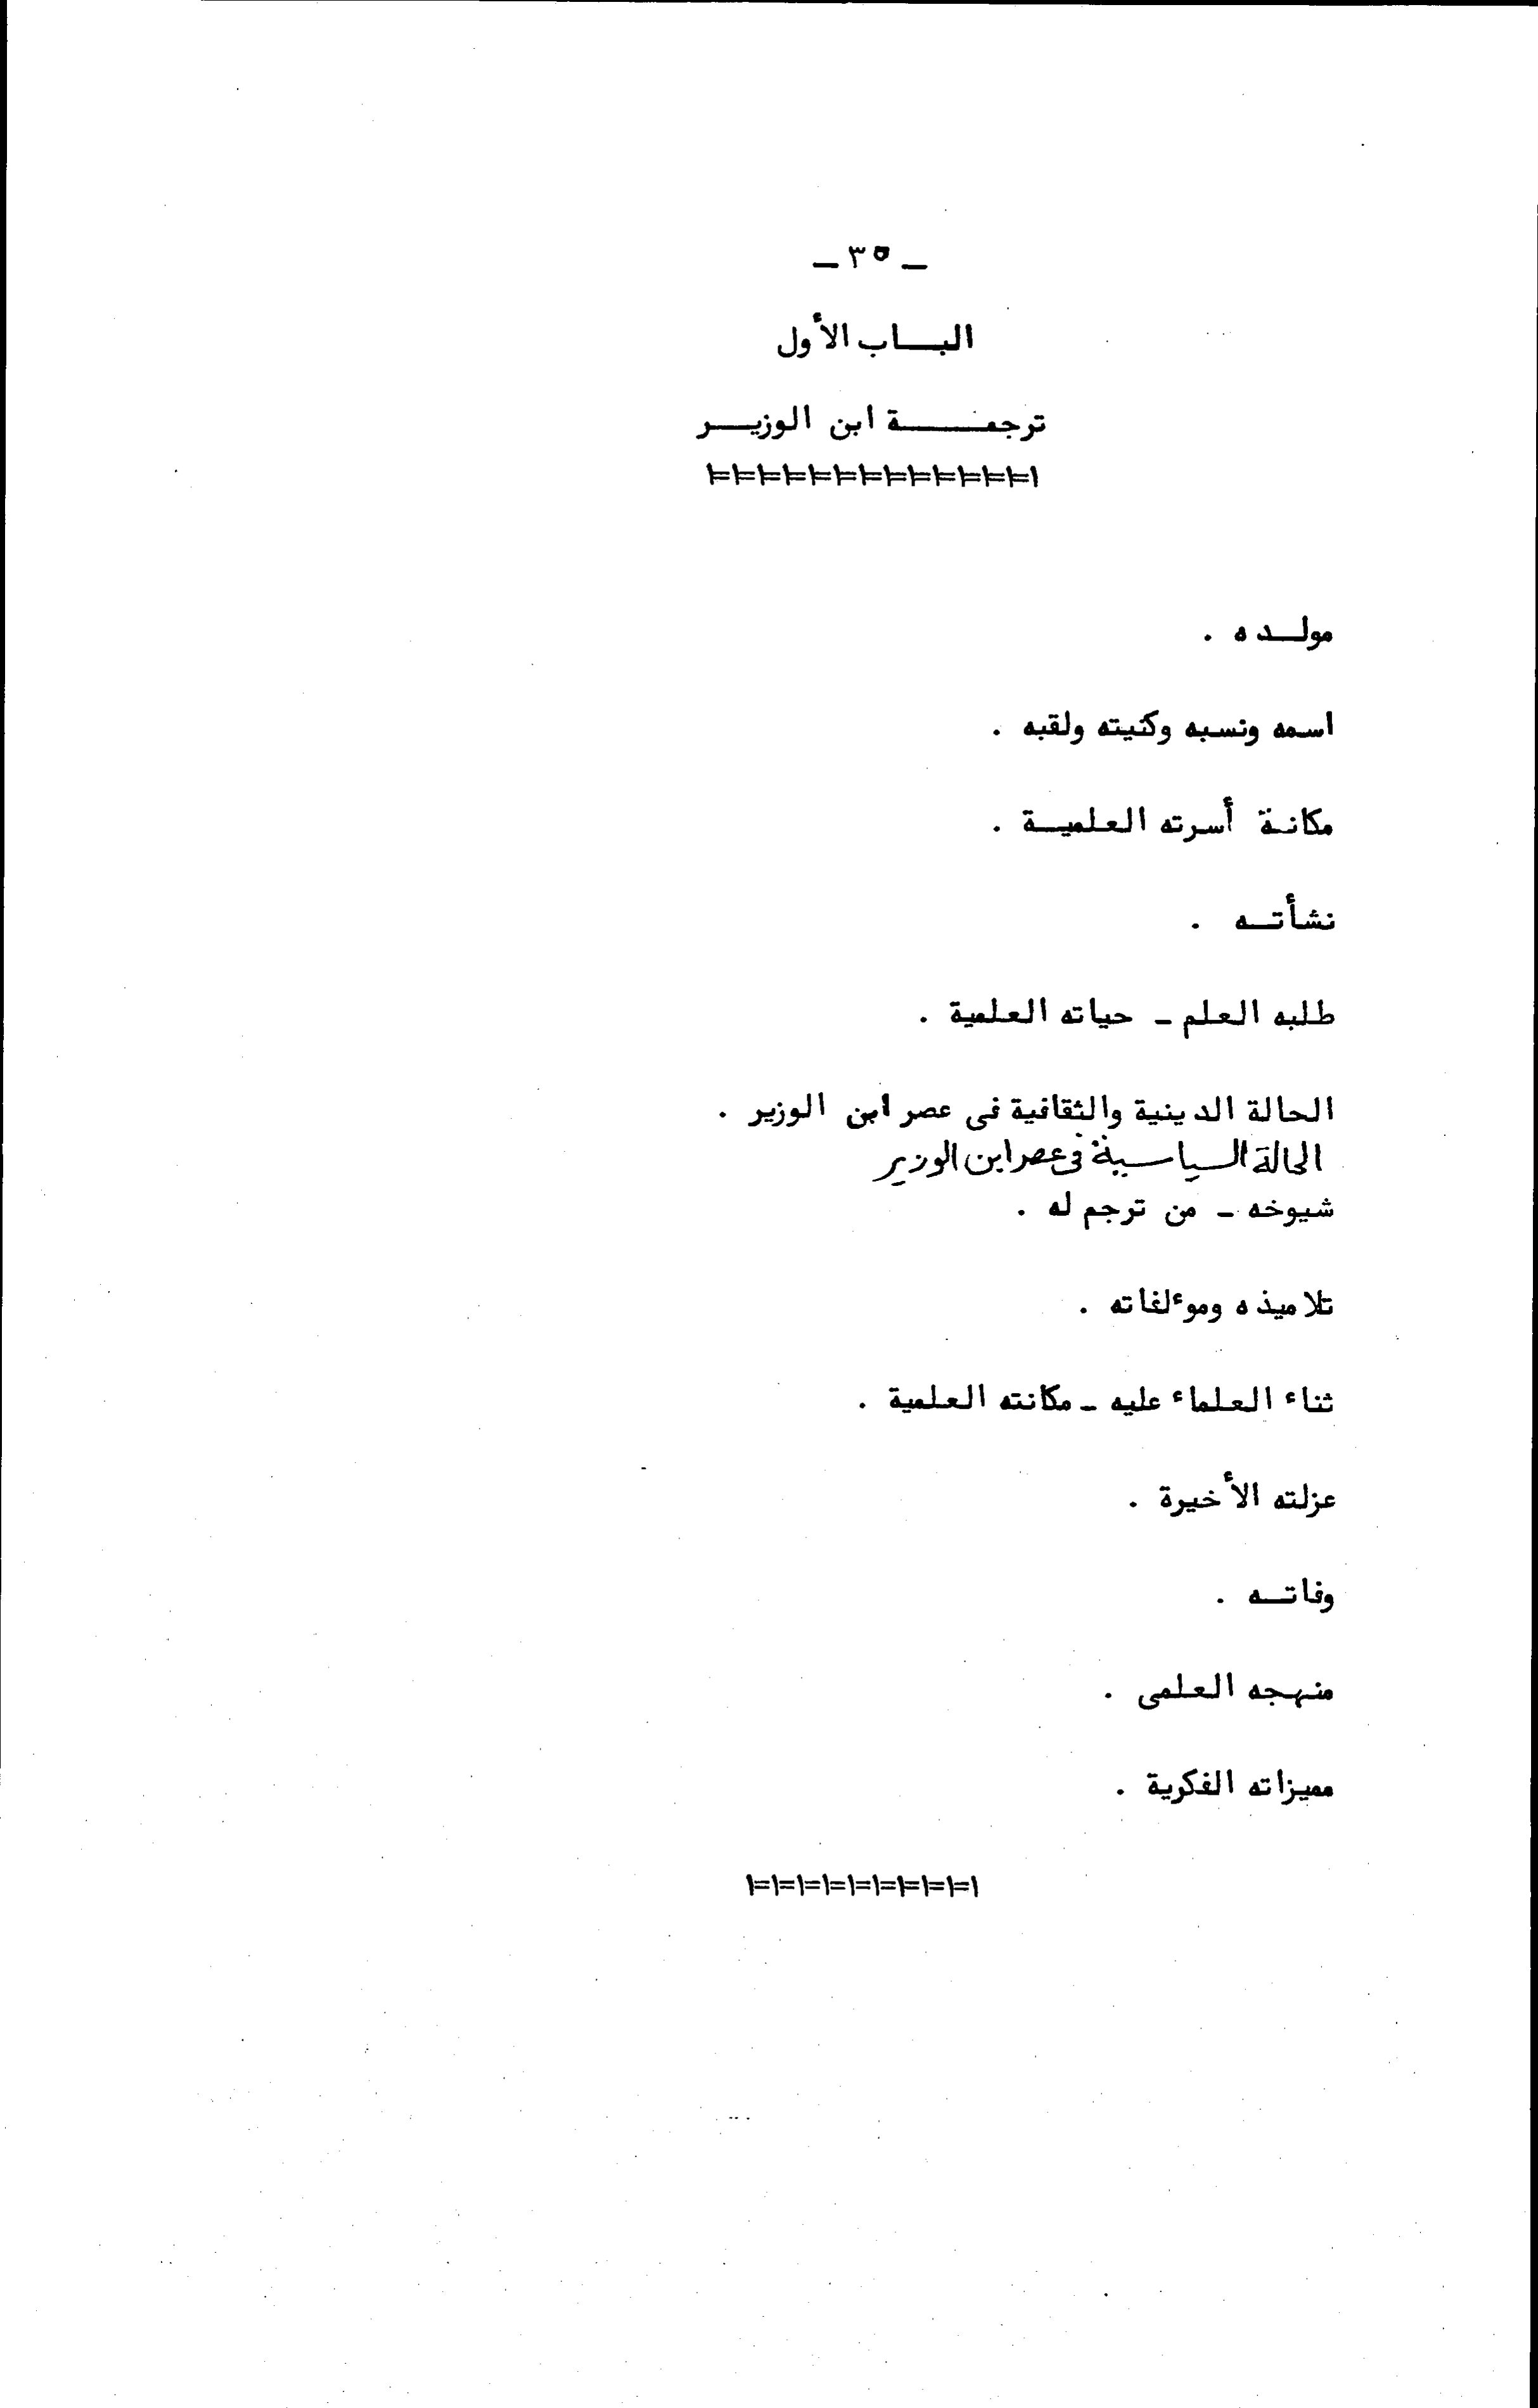 - ٣٥ -
الباب الأول
ترجمة ابن الوزير
مولده .
اسمه ونسبه وكنيته ولقبه .
مكانة أسرته العلمية .
نشأته .
طلبه العلم - حياته العلمية .
الحالة الدينية والثقافية فى عصر ابن الوزير .
الحالة السياسية فى عصر ابن الوزير
شيوخه - من ترجم له .
تلاميذه ومؤلفاته .
ثناء العلماء عليه - مكانته العلمية .
عزلته الأخيرة .
وفاته .
منهجه العلمى .
مميزاته الفكرية .